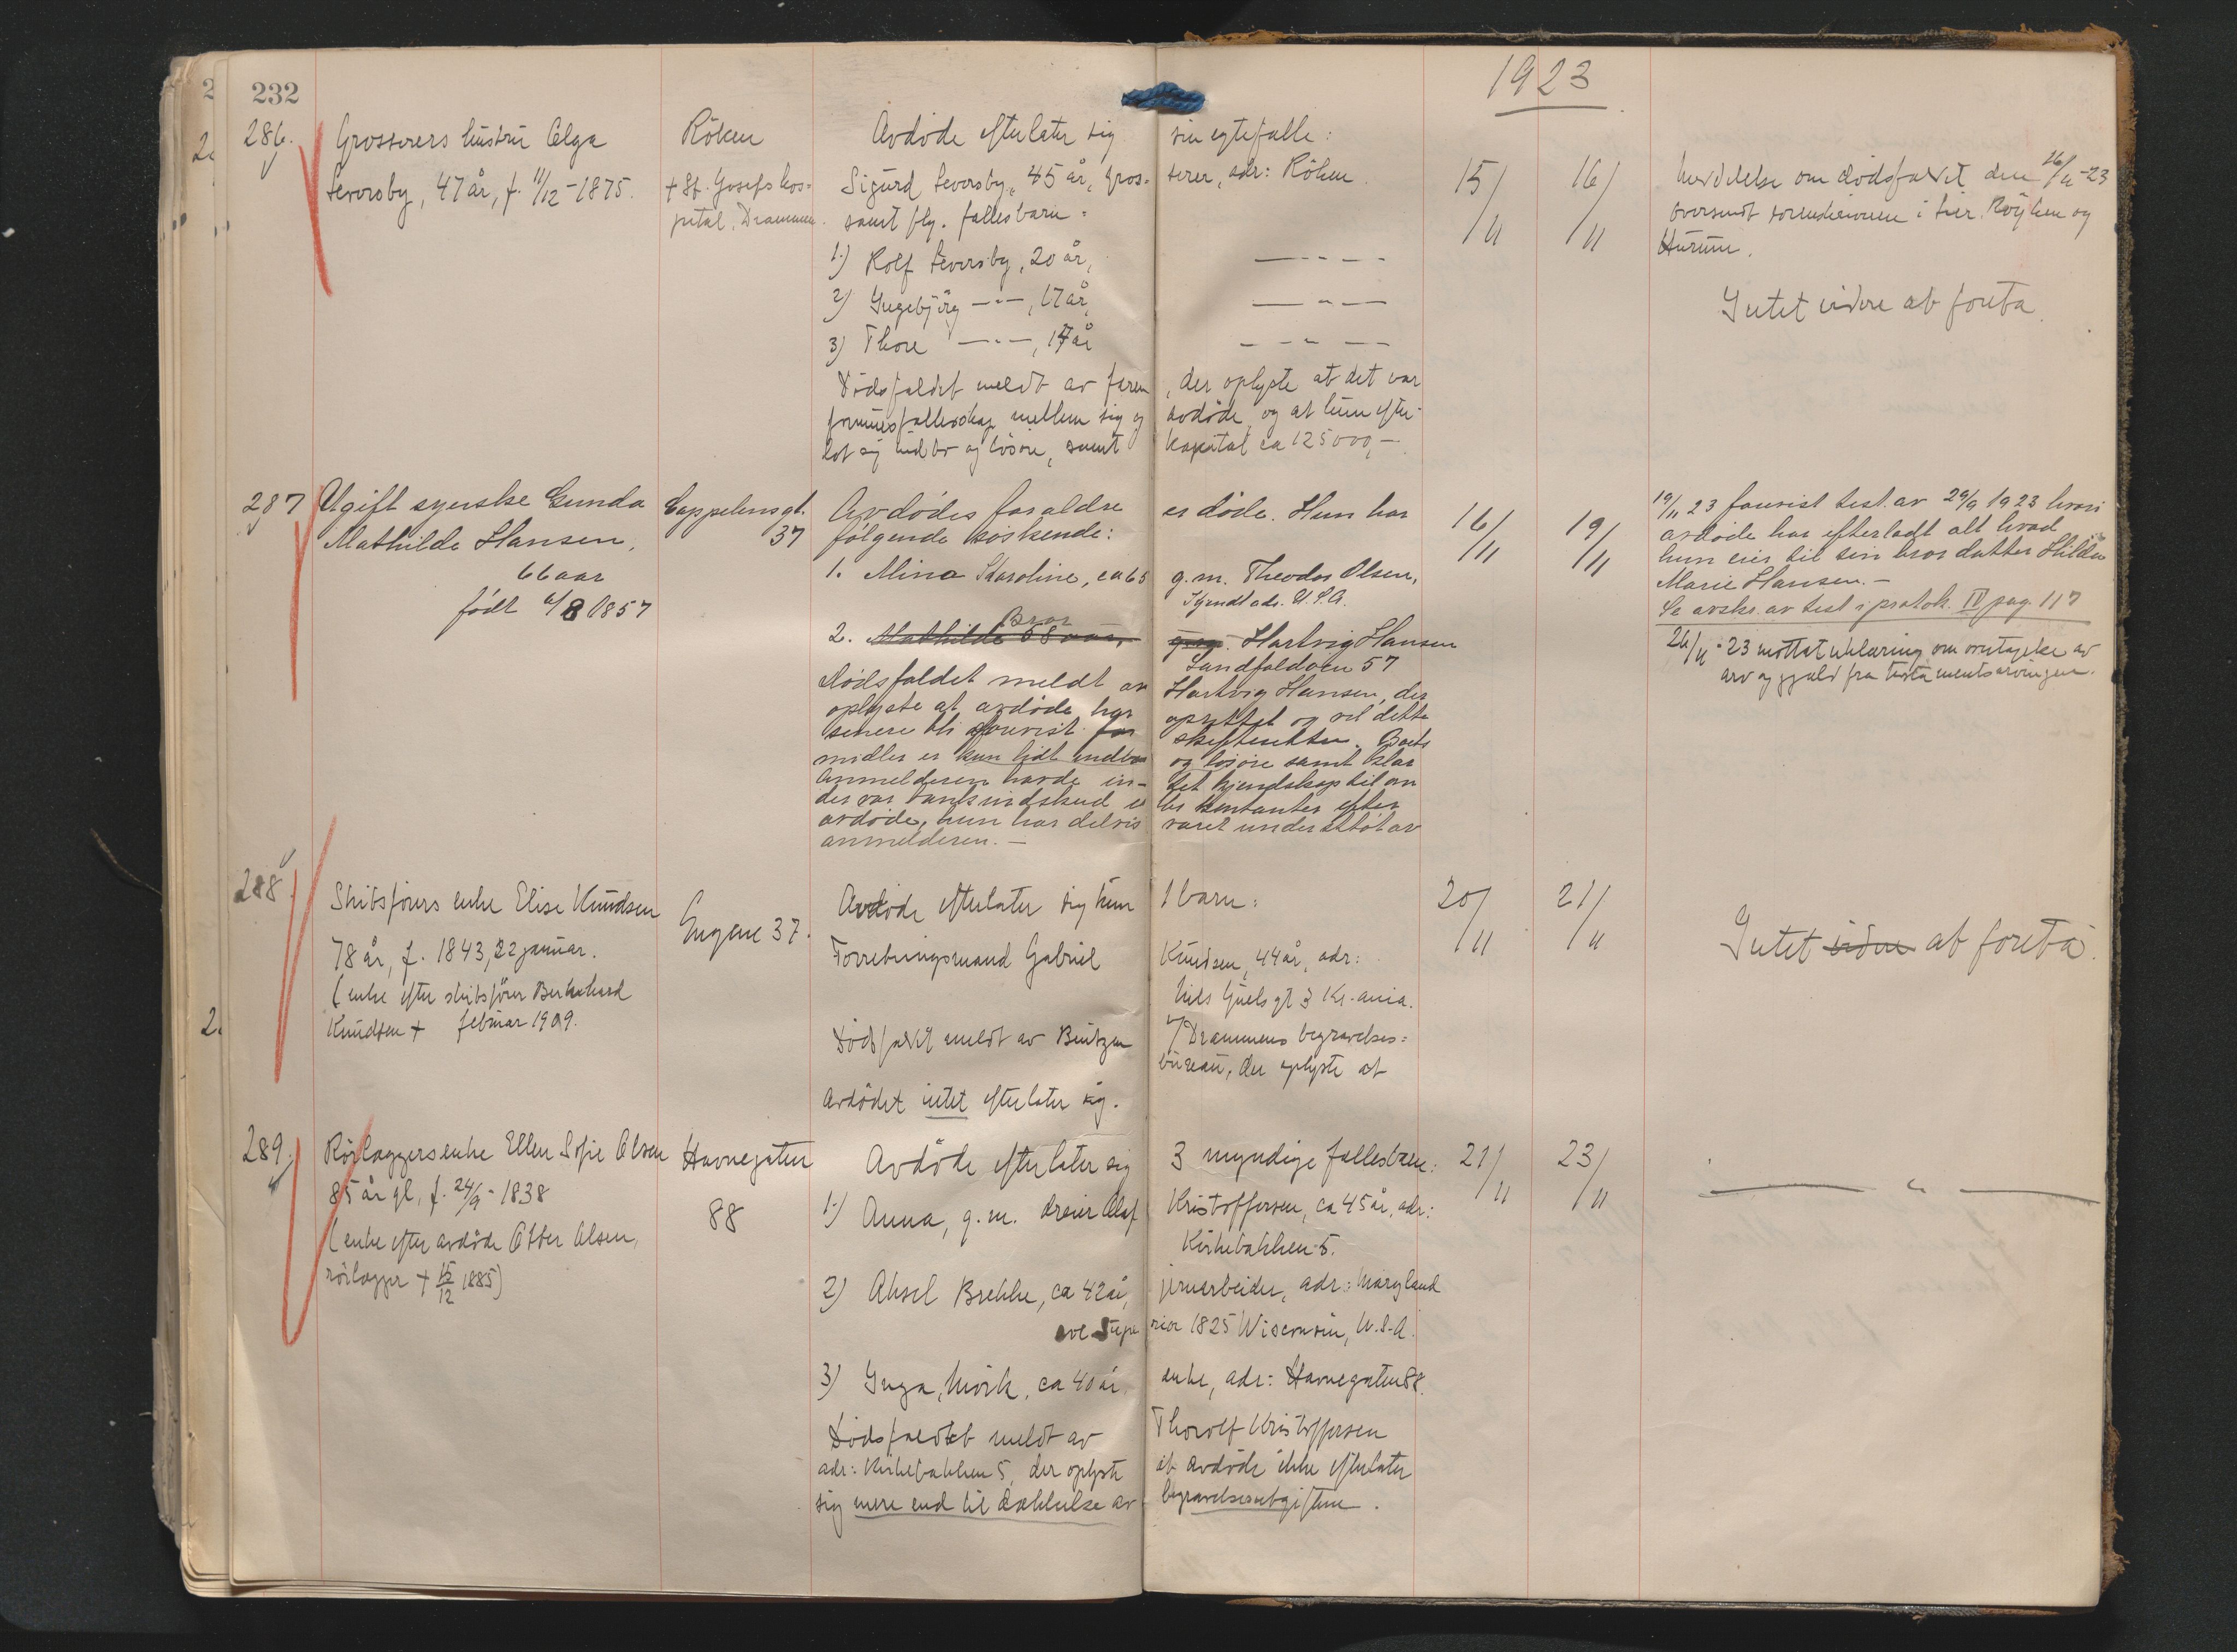 232
1923
286.
Grosserers hustru Olga
Seversby, 47 år, f. 11/12 - 1875.
Röken
+ St. Josefs hos=
pital, Drammen.
Avdøde efterlater sig sin egtefælle:
Sigurd Seversby, 45 år, gros= serer, adr: Röken
samt flg. fællesbarn:
1.) Rolf Seversby, 20 år, — - - —
2) Ingebjörg — " —, 17 år, — " —
3) Thore — " —, 14 år — " —
Dödsfaldet meldt av faren, der oplyste at det var
formuesfællesskap mellem sig og avdöde, og at hun efter-
lot sig indbo og lösöre, samt kapital ca 125000,-
15/11
16/11
Meddelelse om dødsfaldet den 16/11 - 23
oversendt sorenskriveren i Lier, Röyken og
Hurum.
Intet videre at foreta.
287
Ugift syerske Gunda
Mathilde Hansen,
66 aar
født 6/8 1857
Cappelensgt.
37
Avdødes forældre er døde. Hun har
følgende søskende:
1. Mina Karoline, ca 65 g. m. Theodor Olsen,
Ukjendt adr. U.S.A.
Bror
2. Mathilde 58 aar, Hartvig Hansen
Landfaldøen 57
Dødsfaldet meldt av Hartvig Hansen, der
oplyste at avdøde har oprettet og vil dette
senere bli fremvist for skifteretten. Boets
midler er kun lidt indbo og løsøre samt klær
Anmelderen havde in- tet kjendskap til om
der var bankindskud el ler kontanter efter
avdøde, hun har delvis været understøttet av
anmelderen. —
16/11
19/11
19/11 23 fremvist test. av 29/9 1923 hvori
avdøde har efterladt alt hvad
hun eier til sin brordatter Hilda
Marie Hansen. —
Se avskr. av test i protok. IV pag. 117
26/11 - 23 mottat erklæring om overtagelse av
arv og gjæld fra testamentsarvingen.
288.
Skibsförers enke Elise Knudsen
78 år, f. 1843, 22 januar.
(enke efter skibsförer Bernhard
Knudsen + februar 1909.
Engene 37.
Avdöde efterlater sig kun 1 barn:
Forretningsmand Gabriel Knudsen, 44 år, adr:
Niels Juels gt 3 Kr.ania.
Dödsfaldet meldt av Bentzen v/ Drammens begravelses=
bureau, der oplyste at
Avdödet intet efterlater sig.
20/11
21/11
Intet videre at foreta.
289.
Rörlæggersenke Ellen Sofie Olsen
85 år gl, f. 24/9 - 1838
(enke efter avdöde Otter Olsen,
rörlægger + 15/12 1885)
Havnegaten
88
Avdöde efterlater sig 3 myndige fællesbarn:
1.) Anna, g. m. dreier Olaf Kristoffersen, ca 45 år, adr:
Kirkebakken 5.
2) Aksel Brekke, ca 42 år, jernarbeider, adr: Maryland
ave Supe rior 1825 Wisconsin, U.S.A.
3) Inga Mörk, ca 40 år, enke, adr: Havnegaten 88.
Dødsfaldet meldt av Thorolf Kristoffersen
adr: Kirkebakken 5, der oplyste at avdöde ikke efterlater
sig mere end til dækkelse av begravelsesutgiftene.
21/11
23/11
— " —